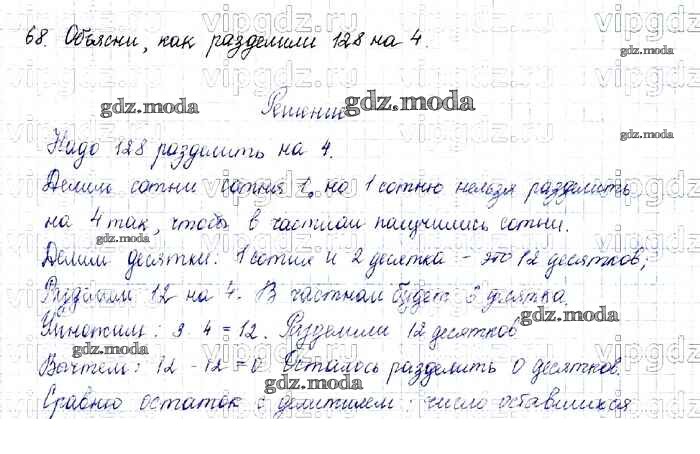 68. Объясни, как разделили 128 на 4.
Решение
Надо 128 разделить на 4.
Делим сотни сотня 1, на 1 сотню нельзя разделить
на 4 так, чтобы в частном получились сотни.
Делим десятки: 1 сотня и 2 десятка - это 12 десятков,
Разделим 12 на 4. В частном будет 3 десятка.
Умножим: 3 4 = 12. Разделили 12 десятков
Вычтем: 12 - 12 = 0 Осталось разделить 0 десятков.
Сравню остаток с делителем: число оставшихся
gdz.moda
gdz.moda
gdz.moda
gdz.moda
gdz.moda
gdz.moda
gdz.moda
gdz.moda
vipgdz